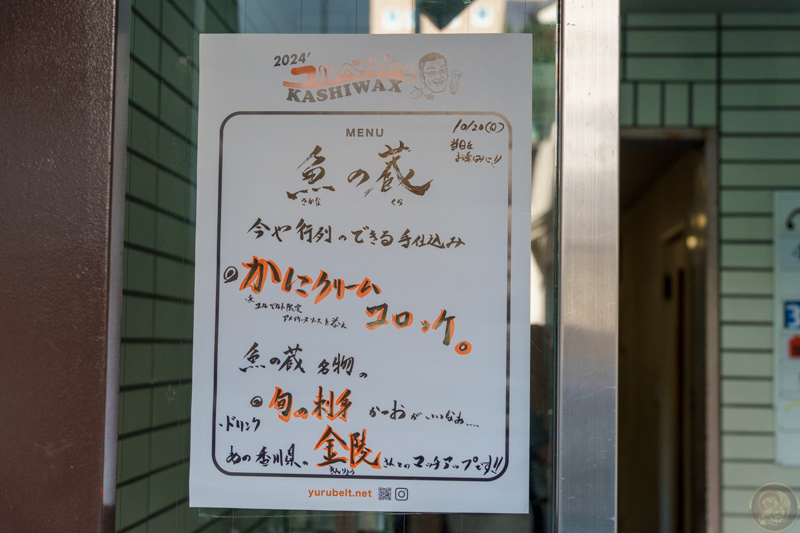 2024'
ユルベルト
KASHIWAX
MENU
10/20(日)
当日を
お楽しみに!!
魚の蔵
さかな くら
今や行列のできる手仕込み
かにクリーム
コロッケ。
※ユルベルト限定
アメリケーヌソースを添え
魚の蔵 名物の
旬の刺身 かつおがいいなぁ....
・ドリンク
あの香川県の金陵さんとのマッチアップです!!
きんりょう
yurubelt.net